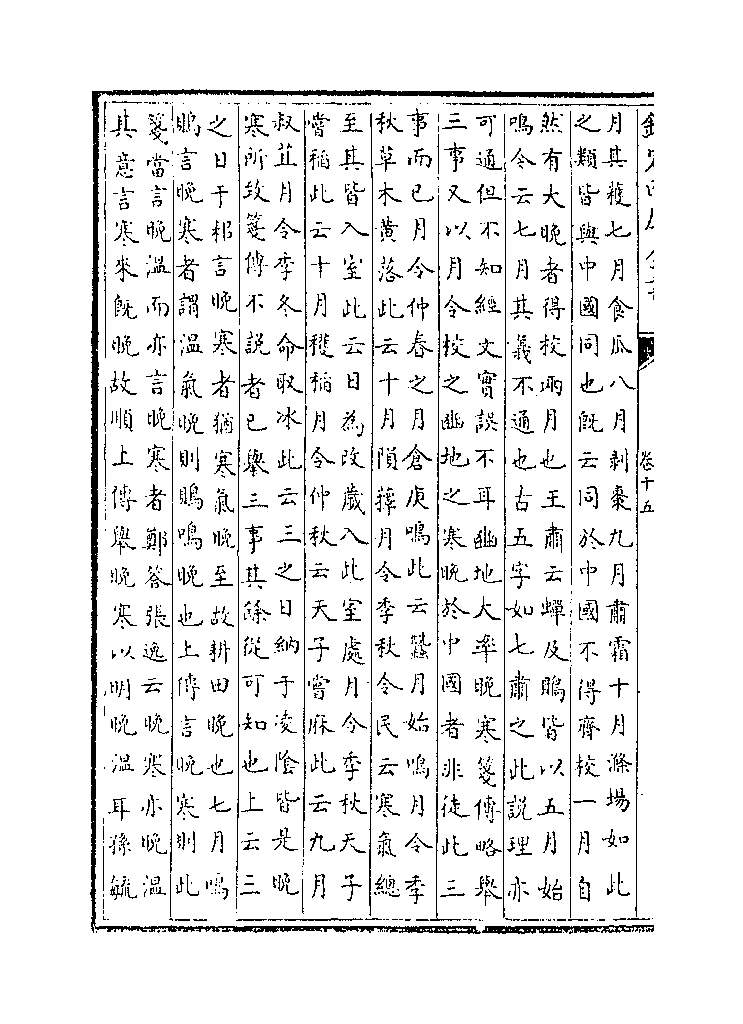 欽定四庫全書
卷十五
月其穫七月食瓜八月剥棗九月肅霜十月滌場如此
之類皆與中國同也既云同於中國不得齊校一月自
然有大晚者得校兩月也王肅云蟬及鵙皆以五月始
鳴今云七月其義不通也古五字如七肅之此説理亦
可通但不知經文實誤不耳豳地大率晚寒箋傳略舉
三事又以月令校之豳地之寒晚於中國者非徒此三
事而已月令仲春之月倉庚鳴此云蠶月始鳴月令季
秋草木黄落此云十月隕蘀月令季秋令民云寒氣總
至其皆入室此云日為改歲入此室處月令季秋天子
嘗稻此云十月穫稻月令仲秋云天子嘗麻此云九月
叔苴月令季冬命取冰此云三之日納于凌隂皆是晚
寒所致箋傳不説者已舉三事其餘從可知也上云三
之日于耜言晚寒者猶寒氣晚至故耕田晚也七月鳴
鵙言晚寒者謂温氣晚則鵙鳴晚也上傳言晚寒則此
箋當言晚温而亦言晚寒者鄭答張逸云晚寒亦晚温
其意言寒來既晚故順上傳舉晚寒以明晚温耳孫毓